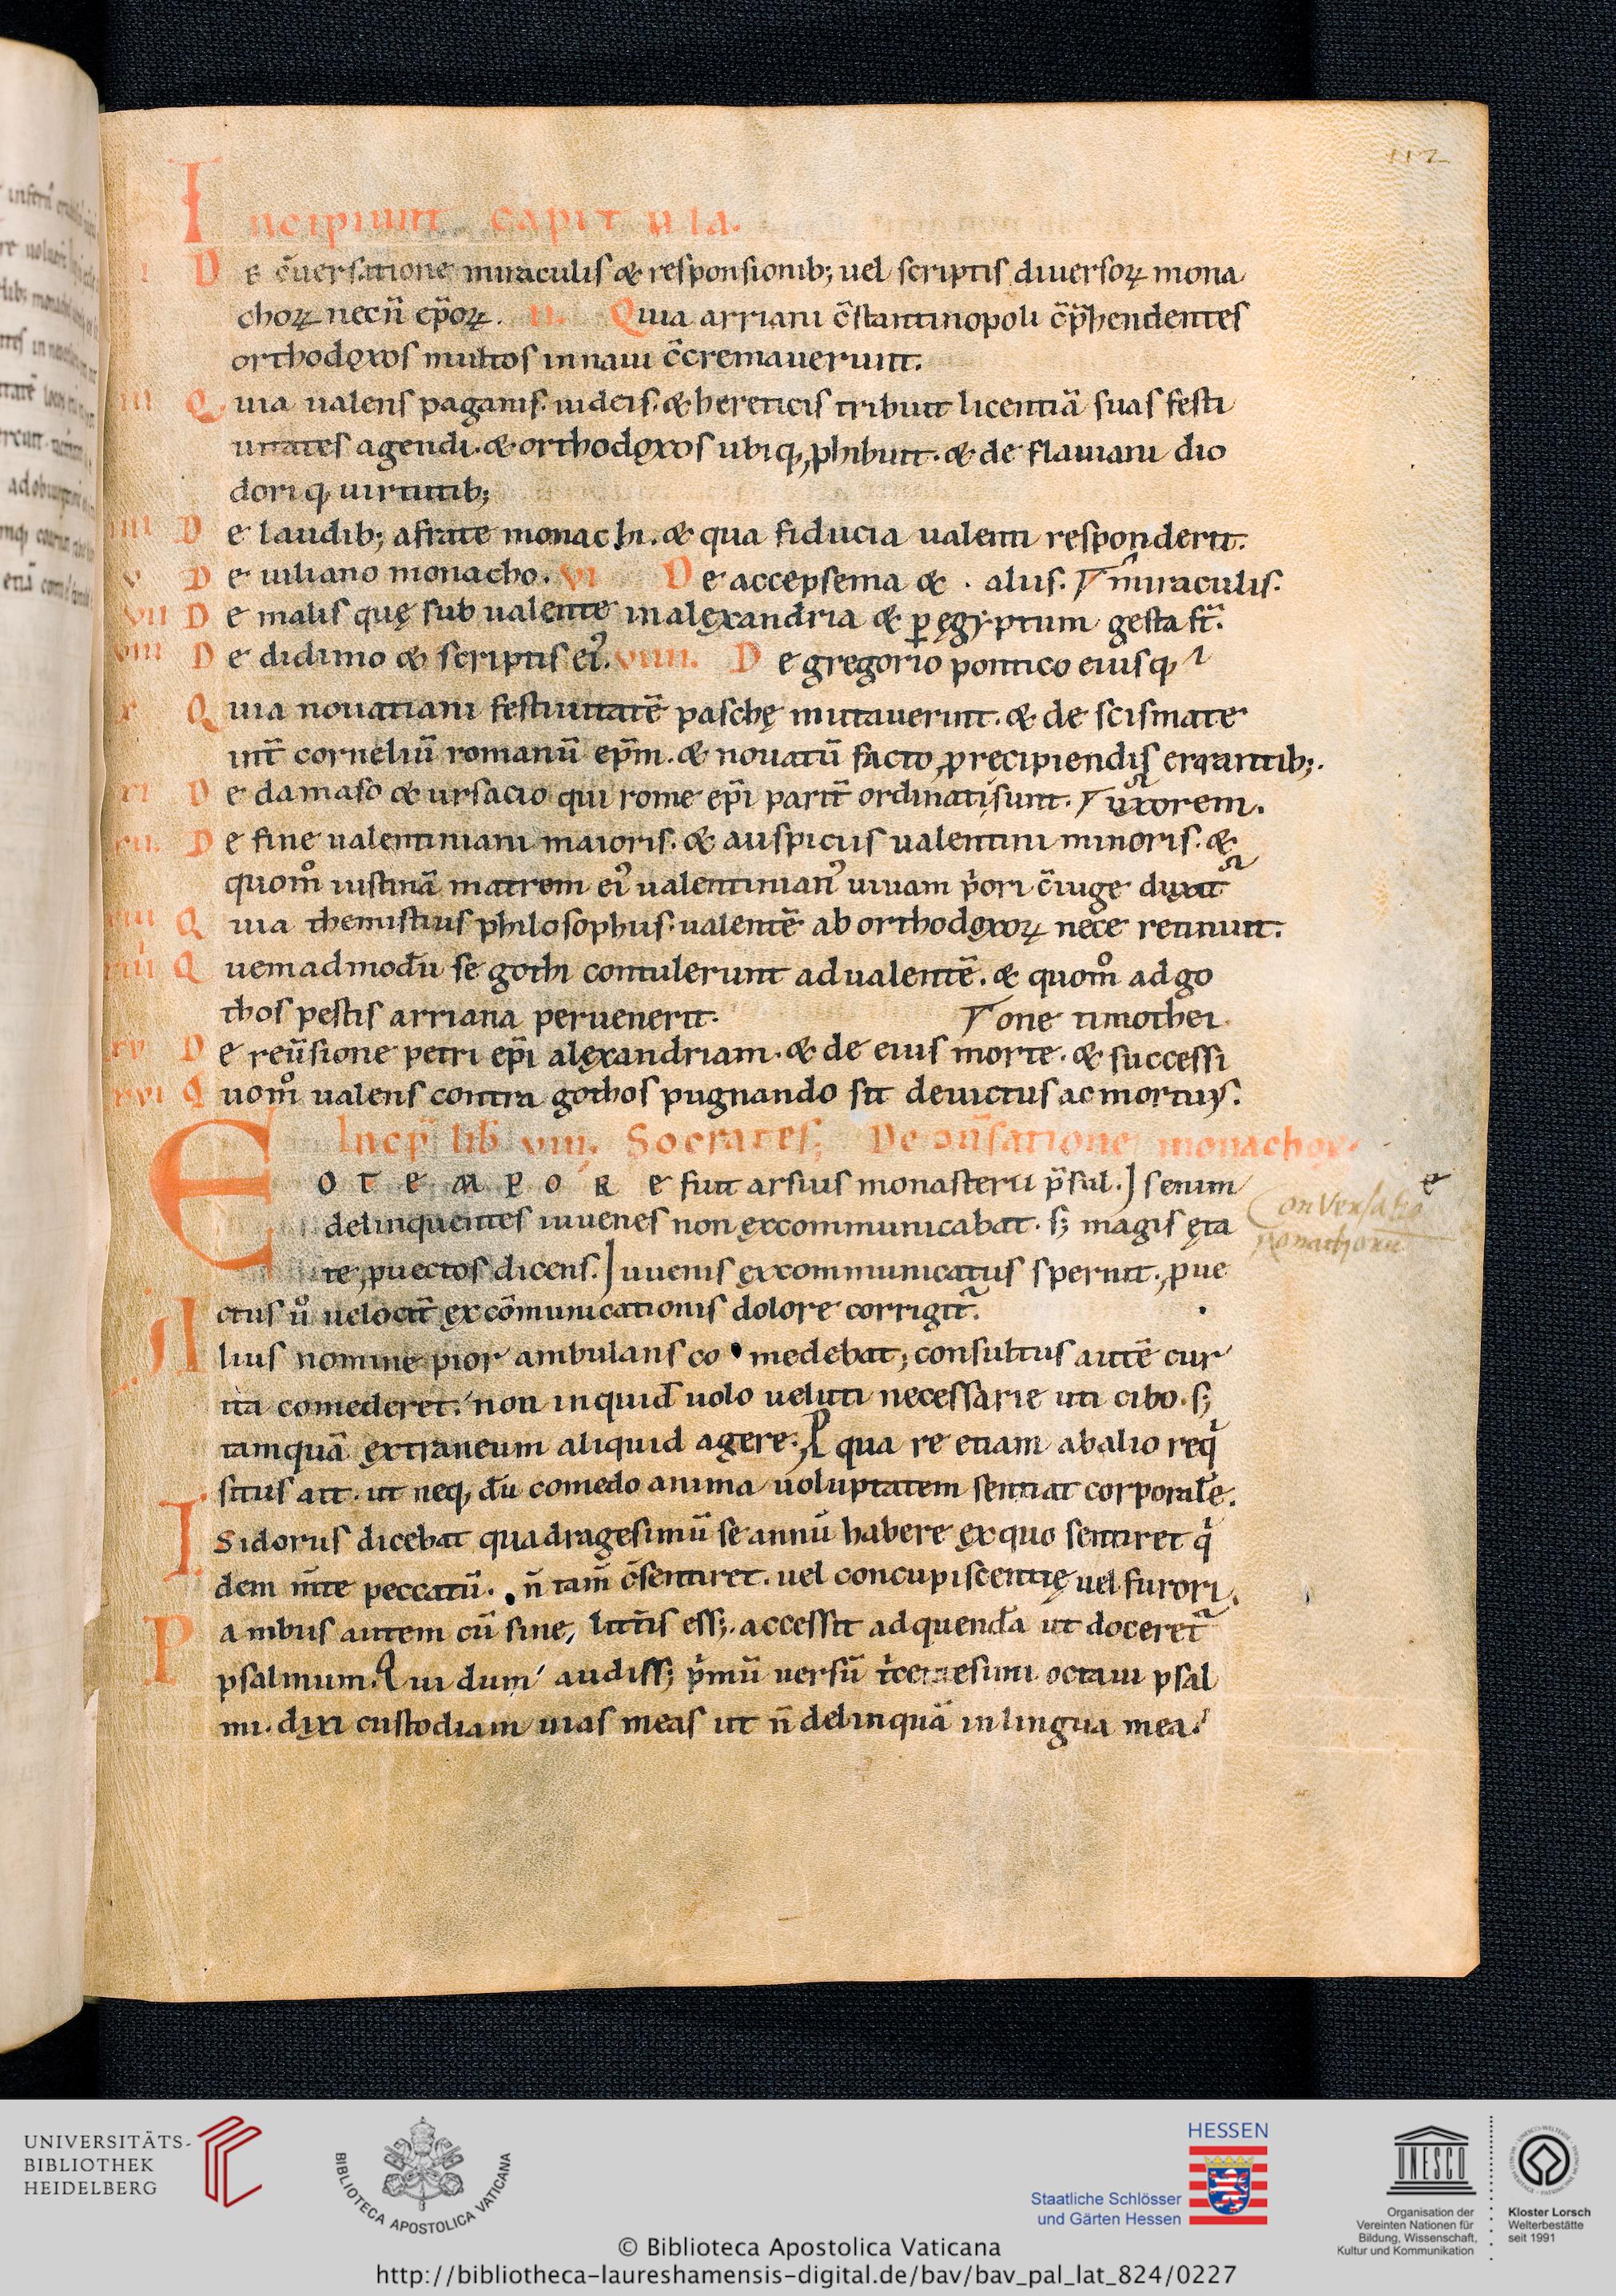 112
Incipiunt capitula.
I De c̄uersatione miraculis & responsionib; uel scriptis diuersoꝝ mona
choꝝ necn̄ ep̄oꝝ. II. Quia arriani c̄stantinopoli c̄p̄hendentes
orthodoxos multos in naui c̄cremauerunt.
III Quia ualens paganis. iudeis. & hereticis tribuit licentiā suas festi
uitates agendi. & orthodoxos ubiq, ꝓhibuit. & de flauiani dio
doriq, uirtutib;
IIII De laudib; afrate monachi. & qua fiducia ualenti responderit.
V De iuliano monacho. VI De accepsema & . aliis. miraculis.
VII De malis quę sub ualente in alexandria & ꝑ ęgyptum gesta st̄.
VIII De didimo & scriptis ei᾽. VIIII. De gregorio pontico eiusq,
X Quia nouatiani festiuitatē paschę mutauerunt. & de scismate
int̄ corneliū romanū ep̄m. & nouatū facto, ꝓ recipiendis errantib;.
XI De damaso & ursacio qui rome ep̄i parit̄ ordinati sunt. uxorem.
XII. De fine ualentiniani maioris. & auspiciis ualentini minoris. &
quom̊ iustinā matrem ei᾽ ualentinian᾽ uiuam p̄ori c̄iuge duxit
XIII Quia themistius philosophus. ualentē ab orthodoxoꝝ nece retinuit.
XIIII Quemadmodū se gothi contulerunt ad ualentē. & quom̊ ad go
thos pestis arriana peruenerit. one timothei
XV De reūsione petri ep̄i alexandriam. & de eius morte. & successi
XVI Quom̊ ualens contra gothos pugnando sit deuictus ac mortuus.
Incp̄ lib VIII. Socrates; De c̄uersatione monachoꝝ
EO TEMPORE fuit arsius monasterii p̄sul. Isenim
delinquentes iuuenes non excommunicabat. s; magis ęta
te, ꝓuectos dicens. Iuuenis excommunicatus spernit. ꝓue
ctus u̾ uelocit̄ excōmunicationis dolore corrigit̄.
Conversatio
monachorū
Alius nomine pior ambulans comedebat; consultus autē cur
ita comederet. non inquid uolo ueluti necessarie uti cibo. s;
tamquā extraneum aliquid agere; Pqua re etiam ab alio req
situs ait. ut neq, dū comedo anima uoluptatem sentiat corporalē.
Isidorus dicebat quadragesimū se annū habere ex quo sentiret q
dem m̄te peccatū. n̄ tam̄ c̄sentiret. uel concupiscentię uel furori.
Pambus autem cū sine litt̄is ess;. accessit ad quendā ut doceret̄
psalmum. Qui dum audiss; p̄mū uersū t̄cetesimi octaui psal
mi. dixi custodiam uias meas ut n̄ delinquā in lingua mea.
UNIVERSITÄTS-
BIBLIOTHEK
HEIDELBERG
BIBLIOTECA APOSTOLICA VATICANA
HESSEN
Staatliche Schlösser
und Gärten Hessen
UNESCO
Organisation der
Vereinten Nationen für
Bildung, Wissenschaft,
Kultur und Kommunikation
Kloster Lorsch
Welterbestätte
seit 1991
© Biblioteca Apostolica Vaticana
http://bibliotheca-laureshamensis-digital.de/bav/bav_pal_lat_824/0227